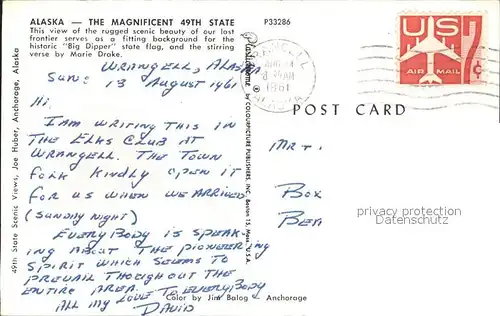 ALASKA — THE MAGNIFICENT 49TH STATE
P33286
This view of the rugged scenic beauty of our last
frontier serves as a fitting background for the
historic "Big Dipper" state flag, and the stirring
verse by Marie Drake.
WRANGELL, ALASKA
SUN: 13 AUGUST 1961
Hi,
I AM WRITING THIS IN
THE ELKS CLUB AT
WRANGELL. THE TOWN
FOLK KINDLY OPEN IT
FOR US WHEN WE ARRIVED
(SUNDAY NIGHT)
EVERYBODY IS SPEAK-
ING ABOUT THE PIONEERING
SPIRIT WHICH SEEMS TO
PREVAIL THOUGHOUT THE
ENTIRE AREA.
ALL MY LOVE TO EVERYBODY
DAVID
Color by Jim Balog — Anchorage
49th State Scenic Views, Joe Huber, Anchorage, Alaska
Plastichrome
® by COLOURPICTURE PUBLISHERS, INC. Boston 15, Mass. U.S.A.
1961
US
AIR MAIL
7¢
POST CARD
Mr &
Box
BEA
privacy protection
Datenschutz